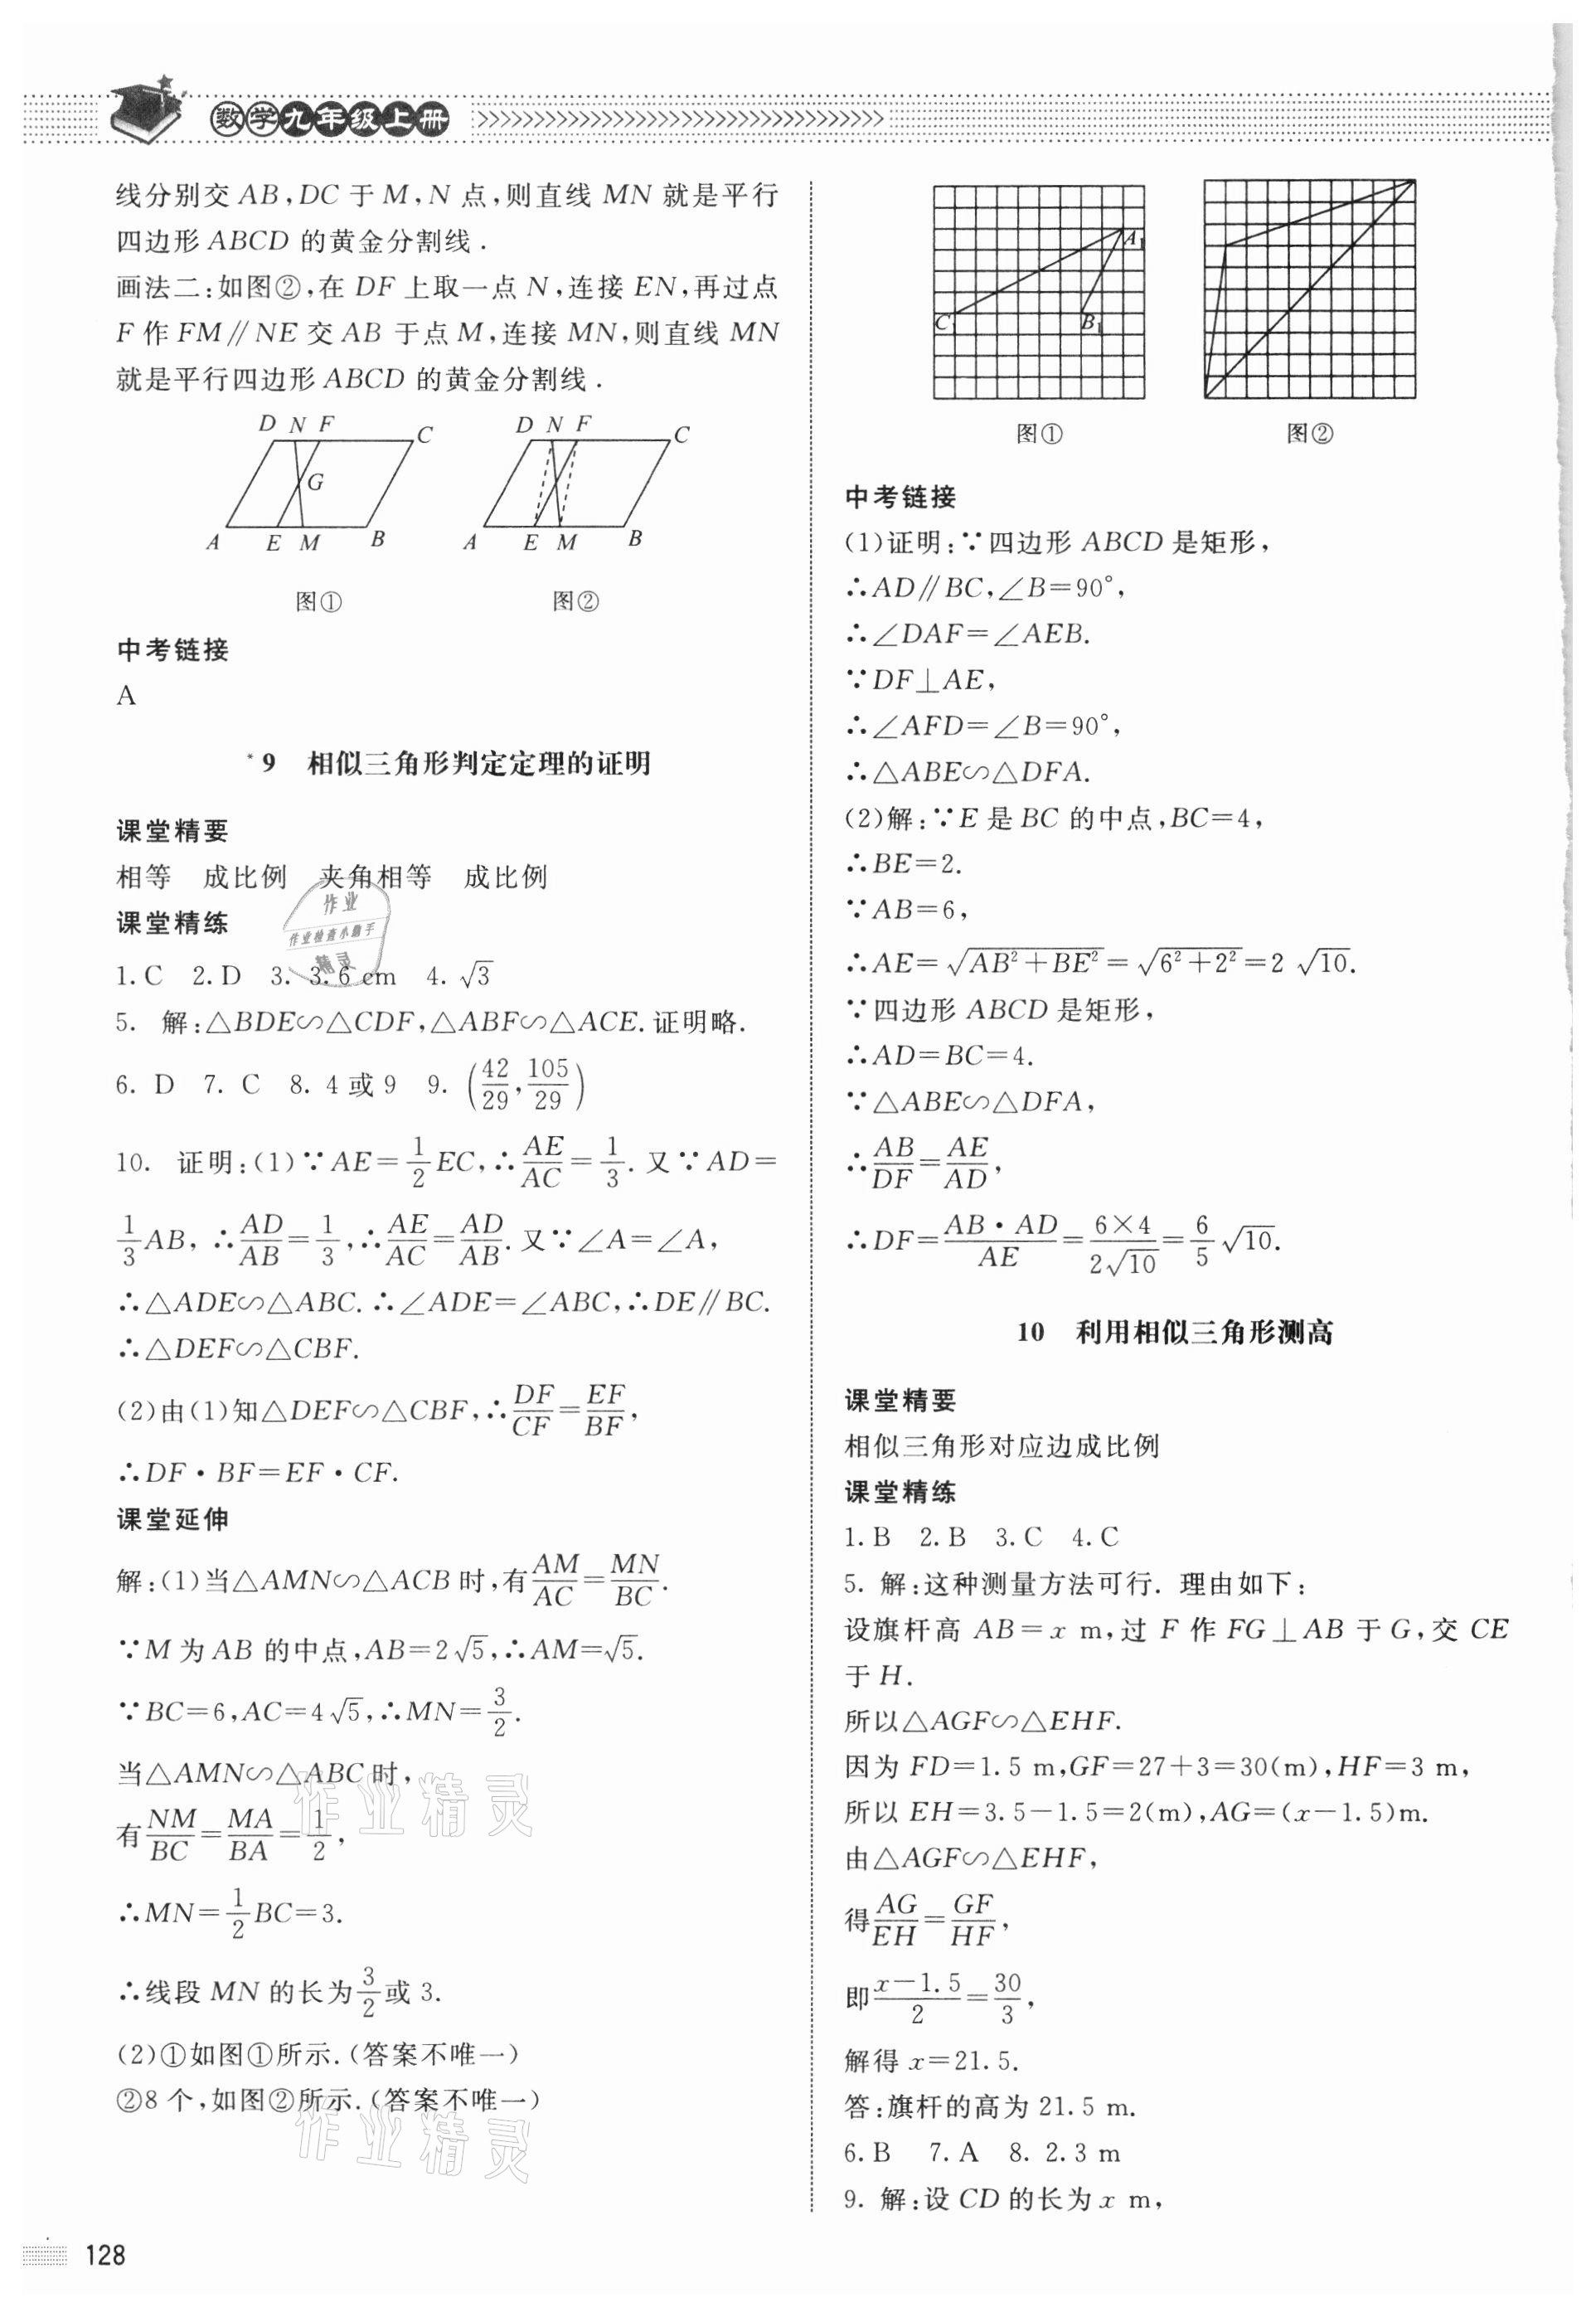 数学九年级上册
线分别交 AB,DC 于 M,N 点,则直线 MN 就是平行
四边形 ABCD 的黄金分割线.
画法二:如图②,在 DF 上取一点 N,连接 EN,再过点
F 作 FM∥NE 交 AB 于点 M,连接 MN,则直线 MN
就是平行四边形 ABCD 的黄金分割线.
D N F C
G
A E M B
图①
D N F C
A E M B
图②
中考链接
A
*9 相似三角形判定定理的证明
课堂精要
相等 成比例 夹角相等 成比例
课堂精练
1. C 2. D 3. 3.6 cm 4. √3
5. 解:△BDE∽△CDF,△ABF∽△ACE. 证明略.
6. D 7. C 8. 4 或 9 9. (42/29, 105/29)
10. 证明:(1)∵AE=1/2 EC,∴AE/AC=1/3. 又∵AD=
1/3 AB, ∴AD/AB=1/3,∴AE/AC=AD/AB. 又∵∠A=∠A,
∴△ADE∽△ABC. ∴∠ADE=∠ABC,∴DE∥BC.
∴△DEF∽△CBF.
(2)由(1)知△DEF∽△CBF,∴DF/CF=EF/BF,
∴DF·BF=EF·CF.
课堂延伸
解:(1)当△AMN∽△ACB 时,有AM/AC=MN/BC.
∵M 为 AB 的中点,AB=2√5,∴AM=√5.
∵BC=6,AC=4√5,∴MN=3/2.
当△AMN∽△ABC 时,
有NM/BC=MA/BA=1/2,
∴MN=1/2 BC=3.
∴线段 MN 的长为3/2或 3.
(2)①如图①所示.(答案不唯一)
②8 个,如图②所示.(答案不唯一)
作业
作业检查小助手
精灵
作业精灵
作业精灵
128
A₁
C₁ B₁
图①
图②
中考链接
(1)证明:∵四边形 ABCD 是矩形,
∴AD∥BC,∠B=90°,
∴∠DAF=∠AEB.
∵DF⊥AE,
∴∠AFD=∠B=90°,
∴△ABE∽△DFA.
(2)解:∵E 是 BC 的中点,BC=4,
∴BE=2.
∵AB=6,
∴AE=√(AB²+BE²)=√(6²+2²)=2√10.
∵四边形 ABCD 是矩形,
∴AD=BC=4.
∵△ABE∽△DFA,
∴AB/DF=AE/AD,
∴DF=AB·AD/AE=6×4/2√10=6/5 √10.
10 利用相似三角形测高
课堂精要
相似三角形对应边成比例
课堂精练
1. B 2. B 3. C 4. C
5. 解:这种测量方法可行. 理由如下:
设旗杆高 AB=x m,过 F 作 FG⊥AB 于 G,交 CE
于 H.
所以△AGF∽△EHF.
因为 FD=1.5 m,GF=27+3=30(m),HF=3 m,
所以 EH=3.5-1.5=2(m),AG=(x-1.5)m.
由△AGF∽△EHF,
得AG/EH=GF/HF,
即x-1.5/2=30/3,
解得 x=21.5.
答:旗杆的高为 21.5 m.
6. B 7. A 8. 2.3 m
9. 解:设 CD 的长为 x m,